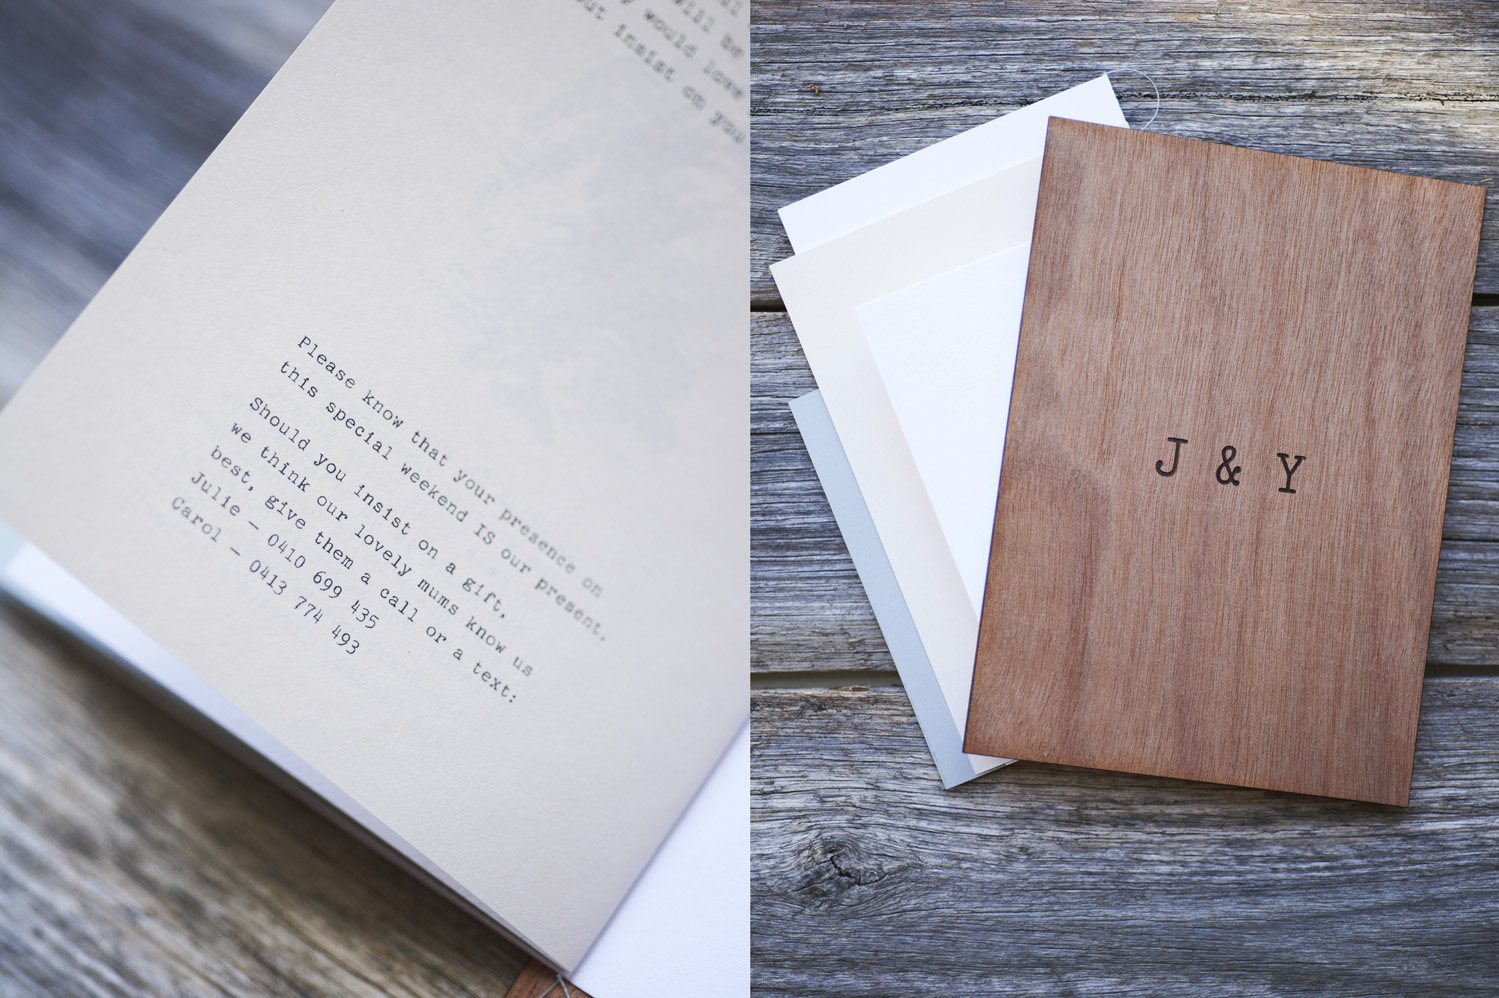 will be
would love
insist on you
Please know that your presence on
this special weekend IS our present.
Should you insist on a gift,
we think our lovely mums know us
best, give them a call or a text:
Julie — 0410 699 435
Carol — 0413 774 493
J & Y